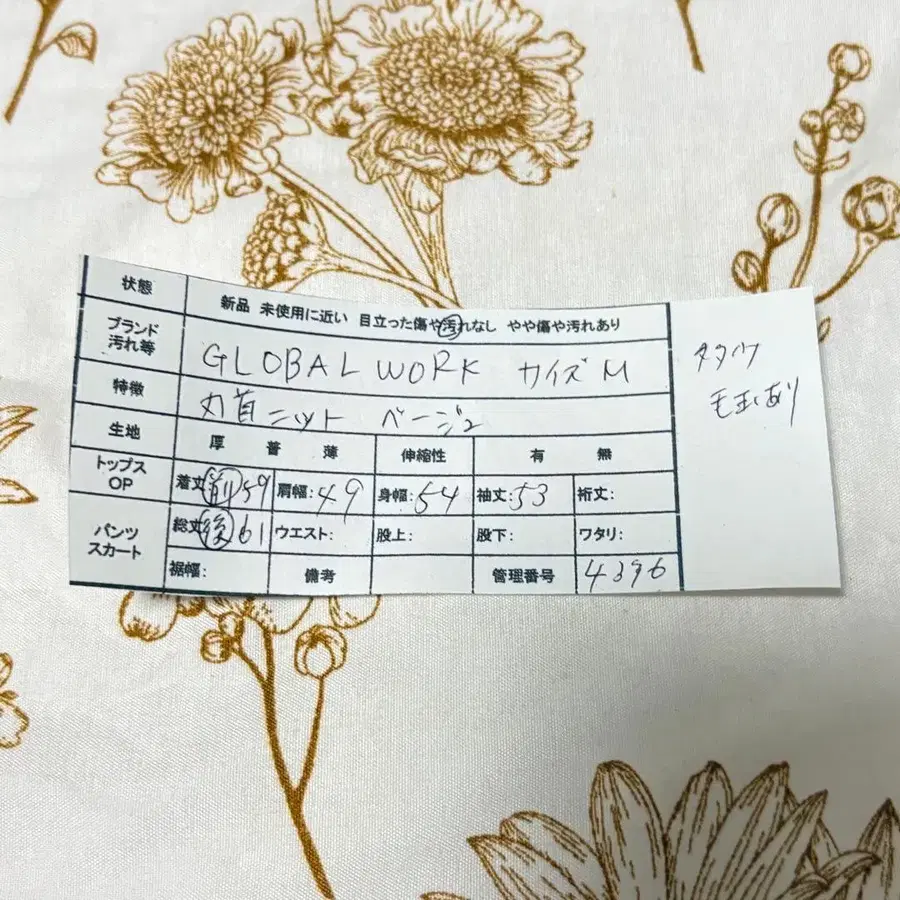 状態 新品 未使用に近い 目立った傷や汚れなし やや傷や汚れあり
ブランド 汚れ等 GLOBAL WORK サイズ M
特徴 丸首ニット ベージュ
生地 厚 普 薄 伸縮性 有 無
トップス OP 着丈前59 肩幅:49 身幅:54 袖丈:53 裄丈:
パンツ スカート 総丈後61 ウエスト: 股上: 股下: ワタリ:
裾幅: 備考 管理番号 4396
毛玉あり